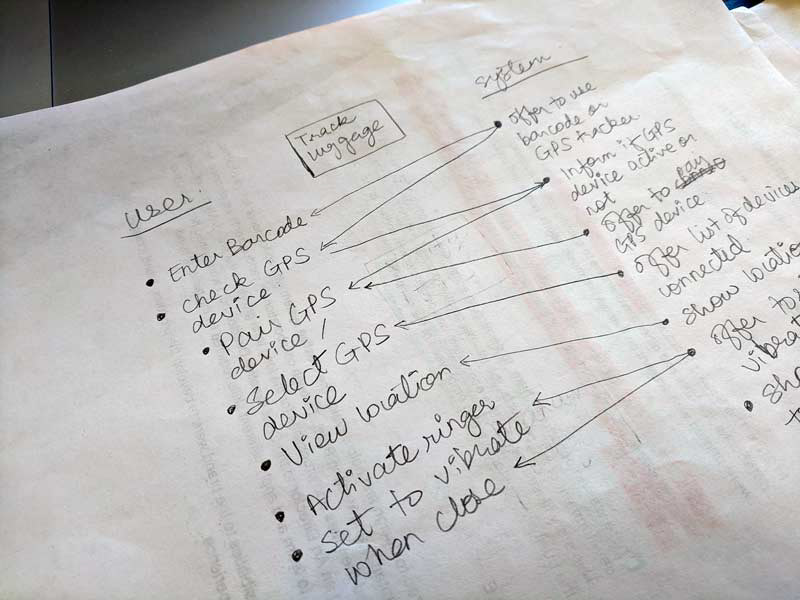 Track
luggage
User.
Enter Barcode
check GPS
device
Pair GPS
device /
Select GPS
device
View location
Activate ringer
Set to vibrate
when close
System
offer to use
barcode or
GPS tracker
Inform if GPS
device active or
not
offer to pay
GPS device
offer list of devices
connected
show location
offer to